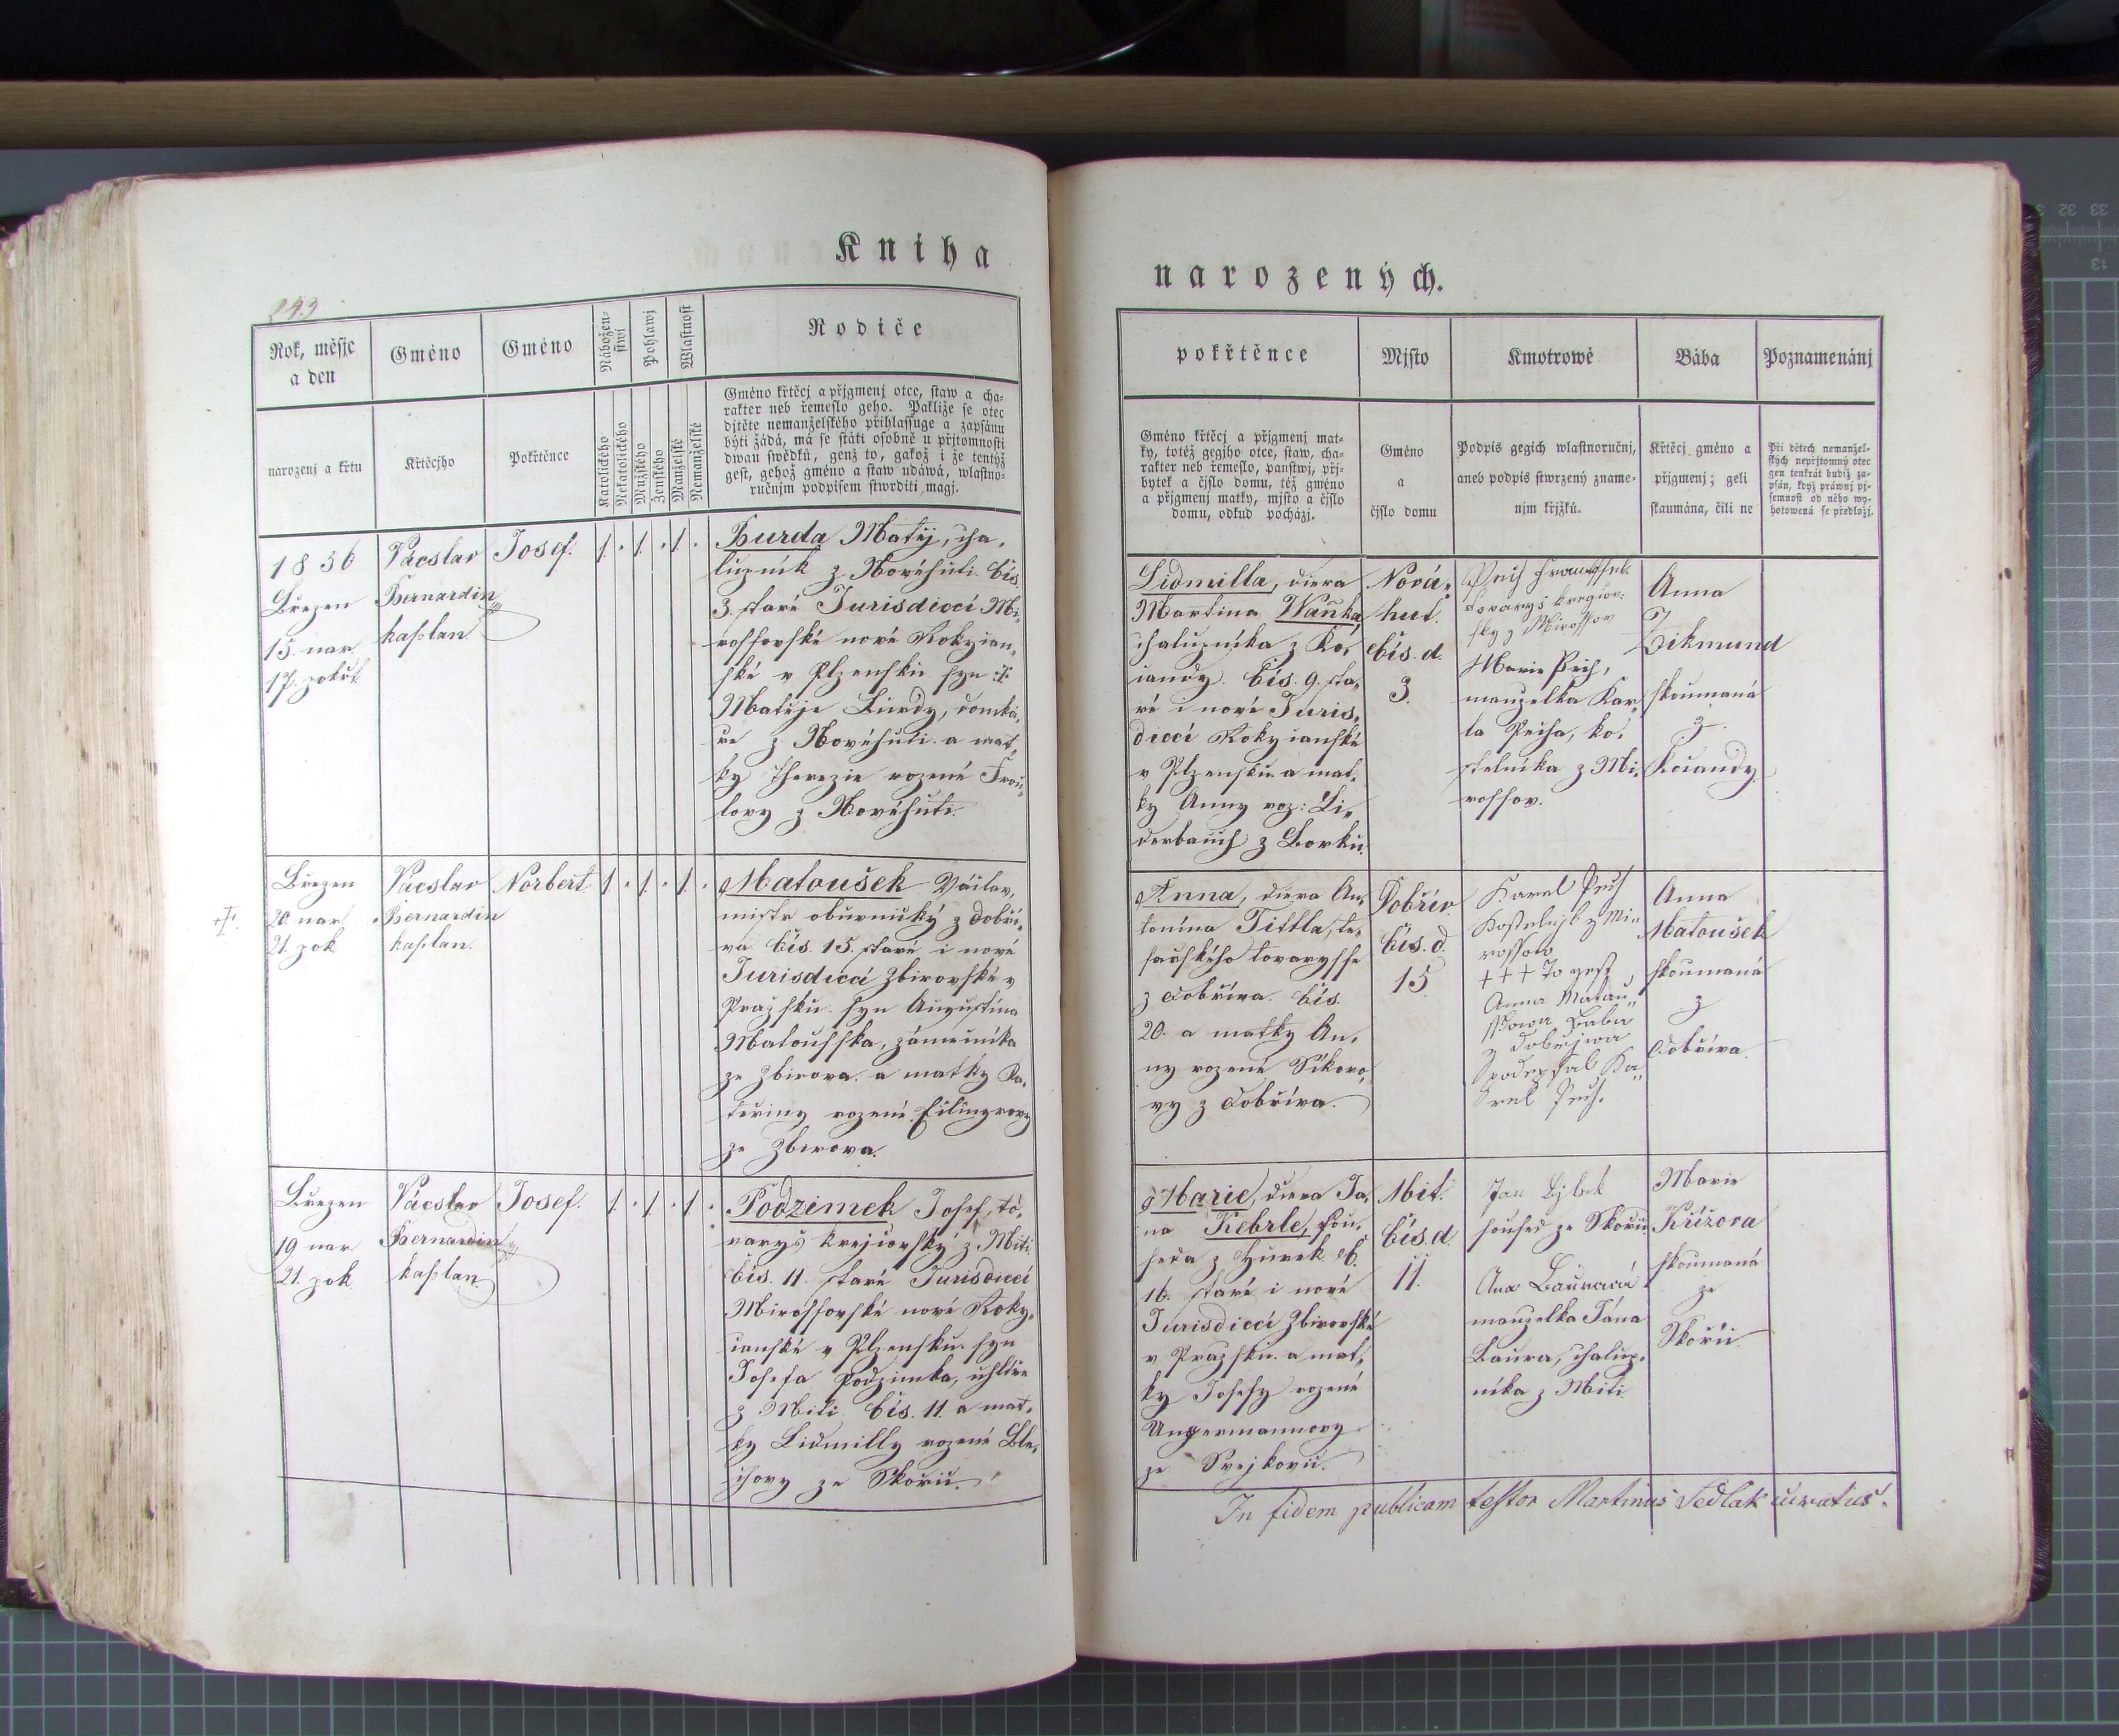 Kniha
243
Rok, měsjc
a den
Gméno
Gméno
Nábožen-
stwj
Pohlawj
Wlastnost
Rodiče
narozenj a křtu
Křtěcjho
Pokřtěnce
Katolického
Nekatolického
Mužského
Ženského
Manželské
Nemanželské
Gméno křtěcj a přjgmenj otce, staw a cha-
rakter neb řemeslo geho. Pakliže se otec
djtěte nemanželského přihlassuge a zapsánu
býti žádá, má se státi osobně u přjtomnosti
dwau swědků, genž to, gakož i že tentýž
gest, gehož gméno a staw udáwá, wlastno-
ručnjm podpisem stwrditi magj.
1856
Březen
15. nar.
17. pokřt.
Vácslav
Bernardin
kaplan
Josef.
1. . 1. . 1. .
Burda Matěj, cha,
lupník z Novéhuti čís.
3. staré Jurisdiccí Mi,
rossovské nové Rokyčan,
ské v Plzensku syn
Matěje Burdy, domká,
re z Novéhuti a mat,
ky Therezie rozené
z Novéhuti.
Březen
20. nar.
21. pok
Vácslav
Bernardin
kaplan.
Norbert
1. . 1. . 1. .
Matoušek Václav,
mistr obuvnický z Dobří,
va čís. 15. staré i nové
Jurisdiccí Zbirovské v
Pražsku. syn Augustina
Matousska, zámečníka
ze Zbirova a matky Ka,
teřiny rozené
ze Zbirova.
Březen
19 nar
21. pok
Vácslav
Bernardin
kaplan.
Josef.
1. . 1. . 1. .
Podzimek Josef, to,
varyš krejčovský z Mití
čís. 11. staré Jurisdiccí
Mirossovské nové Roky,
čanské v Plzensku. syn
Josefa Podzimka, uhlíře
z Mití čís. 11. a mat,
ky Lidmilly rozené Ble,
chovy ze Skořic.
narozených.
pokřtěnce
Mjsto
Kmotrowé
Bába
Poznamenánj
Gméno křtěcj a přjgmenj mat-
ky, totéž gegjho otce, staw, cha-
rakter neb řemeslo, panstwj, přj-
bytek a čjslo domu, též gméno
a přjgmenj matky, mjsto a čjslo
domu, odkud pocházj.
Gméno
a
čjslo domu
Podpis gegich wlastnoručnj,
aneb podpis stwrzený zname-
njm křjžků.
Křtěcj gméno a
přjgmenj; geli
skaumána, čili ne
Při dětech nemanžel-
ských nepřjtomný otec
gen tenkrát budiž za-
psán, když práwnj pj-
semnost od něho wy-
hotowená se předložj.
Lidmilla, dcera
Martina Waňka,
chalupníka z Ko,
čandy. čís. 9. sta,
ré i nové Juris,
dicci Rokyčanské
v Plzensku a mat,
ky Anny roz: Li,
derbauch z Borku.
Nová,
huť.
čís. d.
3.
Pech
tovaryš kregčov,
sky z Mirossov
Marie Pech,
manzelka Kar,
la Pecha, ko,
stelníka z Mi,
rossov.
Anna
Zikmund
skoumaná
z
Kočandy.
Anna, dcera An,
tonína Tittla, te,
sařského tovarysse
z Dobříva. čís.
20. a matky An,
ny rozené Síkoro,
vy z Dobříva.
Dobřív.
čís. d.
15.
Karel Pech
z Mi,
rossow
+++ To gest
Anna Matau,
sskowa baba
z Dobřjwa
podepsal Ka,
rel Pech.
Anna
Matoušek
skoumaná
z
Dobříva.
Marie, dcera Ja,
na Kebrle, sou,
seda z Hůrek č.
16. staré i nové
Jurisdiccí Zbirovské
v Pražsku. a mat,
ky Josefy rozené
Ungermannovy
ze Svejkovic.
Mití.
čís d.
11.
Jan
soused ze Skořic.
Ana
manzelka Jána
Baura, chalup,
níka z Mití
Marie
Křížova
skoumaná
ze
Skořic.
In fidem publicam testor Martinus Sedlak curatus.